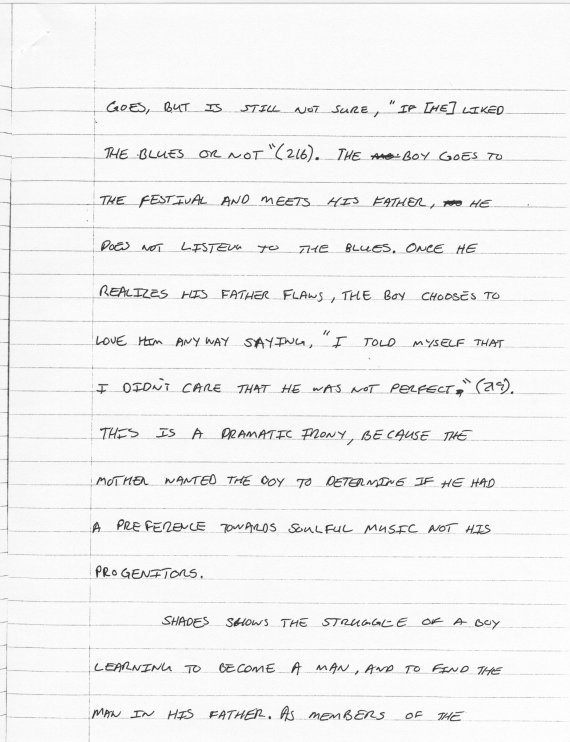 GOES, BUT IS STILL NOT SURE, "IF [HE] LIKED
THE BLUES OR NOT" (216). THE BOY GOES TO
THE FESTIVAL AND MEETS HIS FATHER, HE
DOES NOT LISTEN TO THE BLUES. ONCE HE
REALIZES HIS FATHER FLAWS, THE BOY CHOOSES TO
LOVE HIM ANYWAY SAYING, "I TOLD MYSELF THAT
I DIDN'T CARE THAT HE WAS NOT PERFECT," (219).
THIS IS A DRAMATIC IRONY, BECAUSE THE
MOTHER WANTED THE BOY TO DETERMINE IF HE HAD
A PREFERENCE TOWARDS SOULFUL MUSIC NOT HIS
PROGENITORS.
SHADES SHOWS THE STRUGGLE OF A BOY
LEARNING TO BECOME A MAN, AND TO FIND THE
MAN IN HIS FATHER. AS MEMBERS OF THE